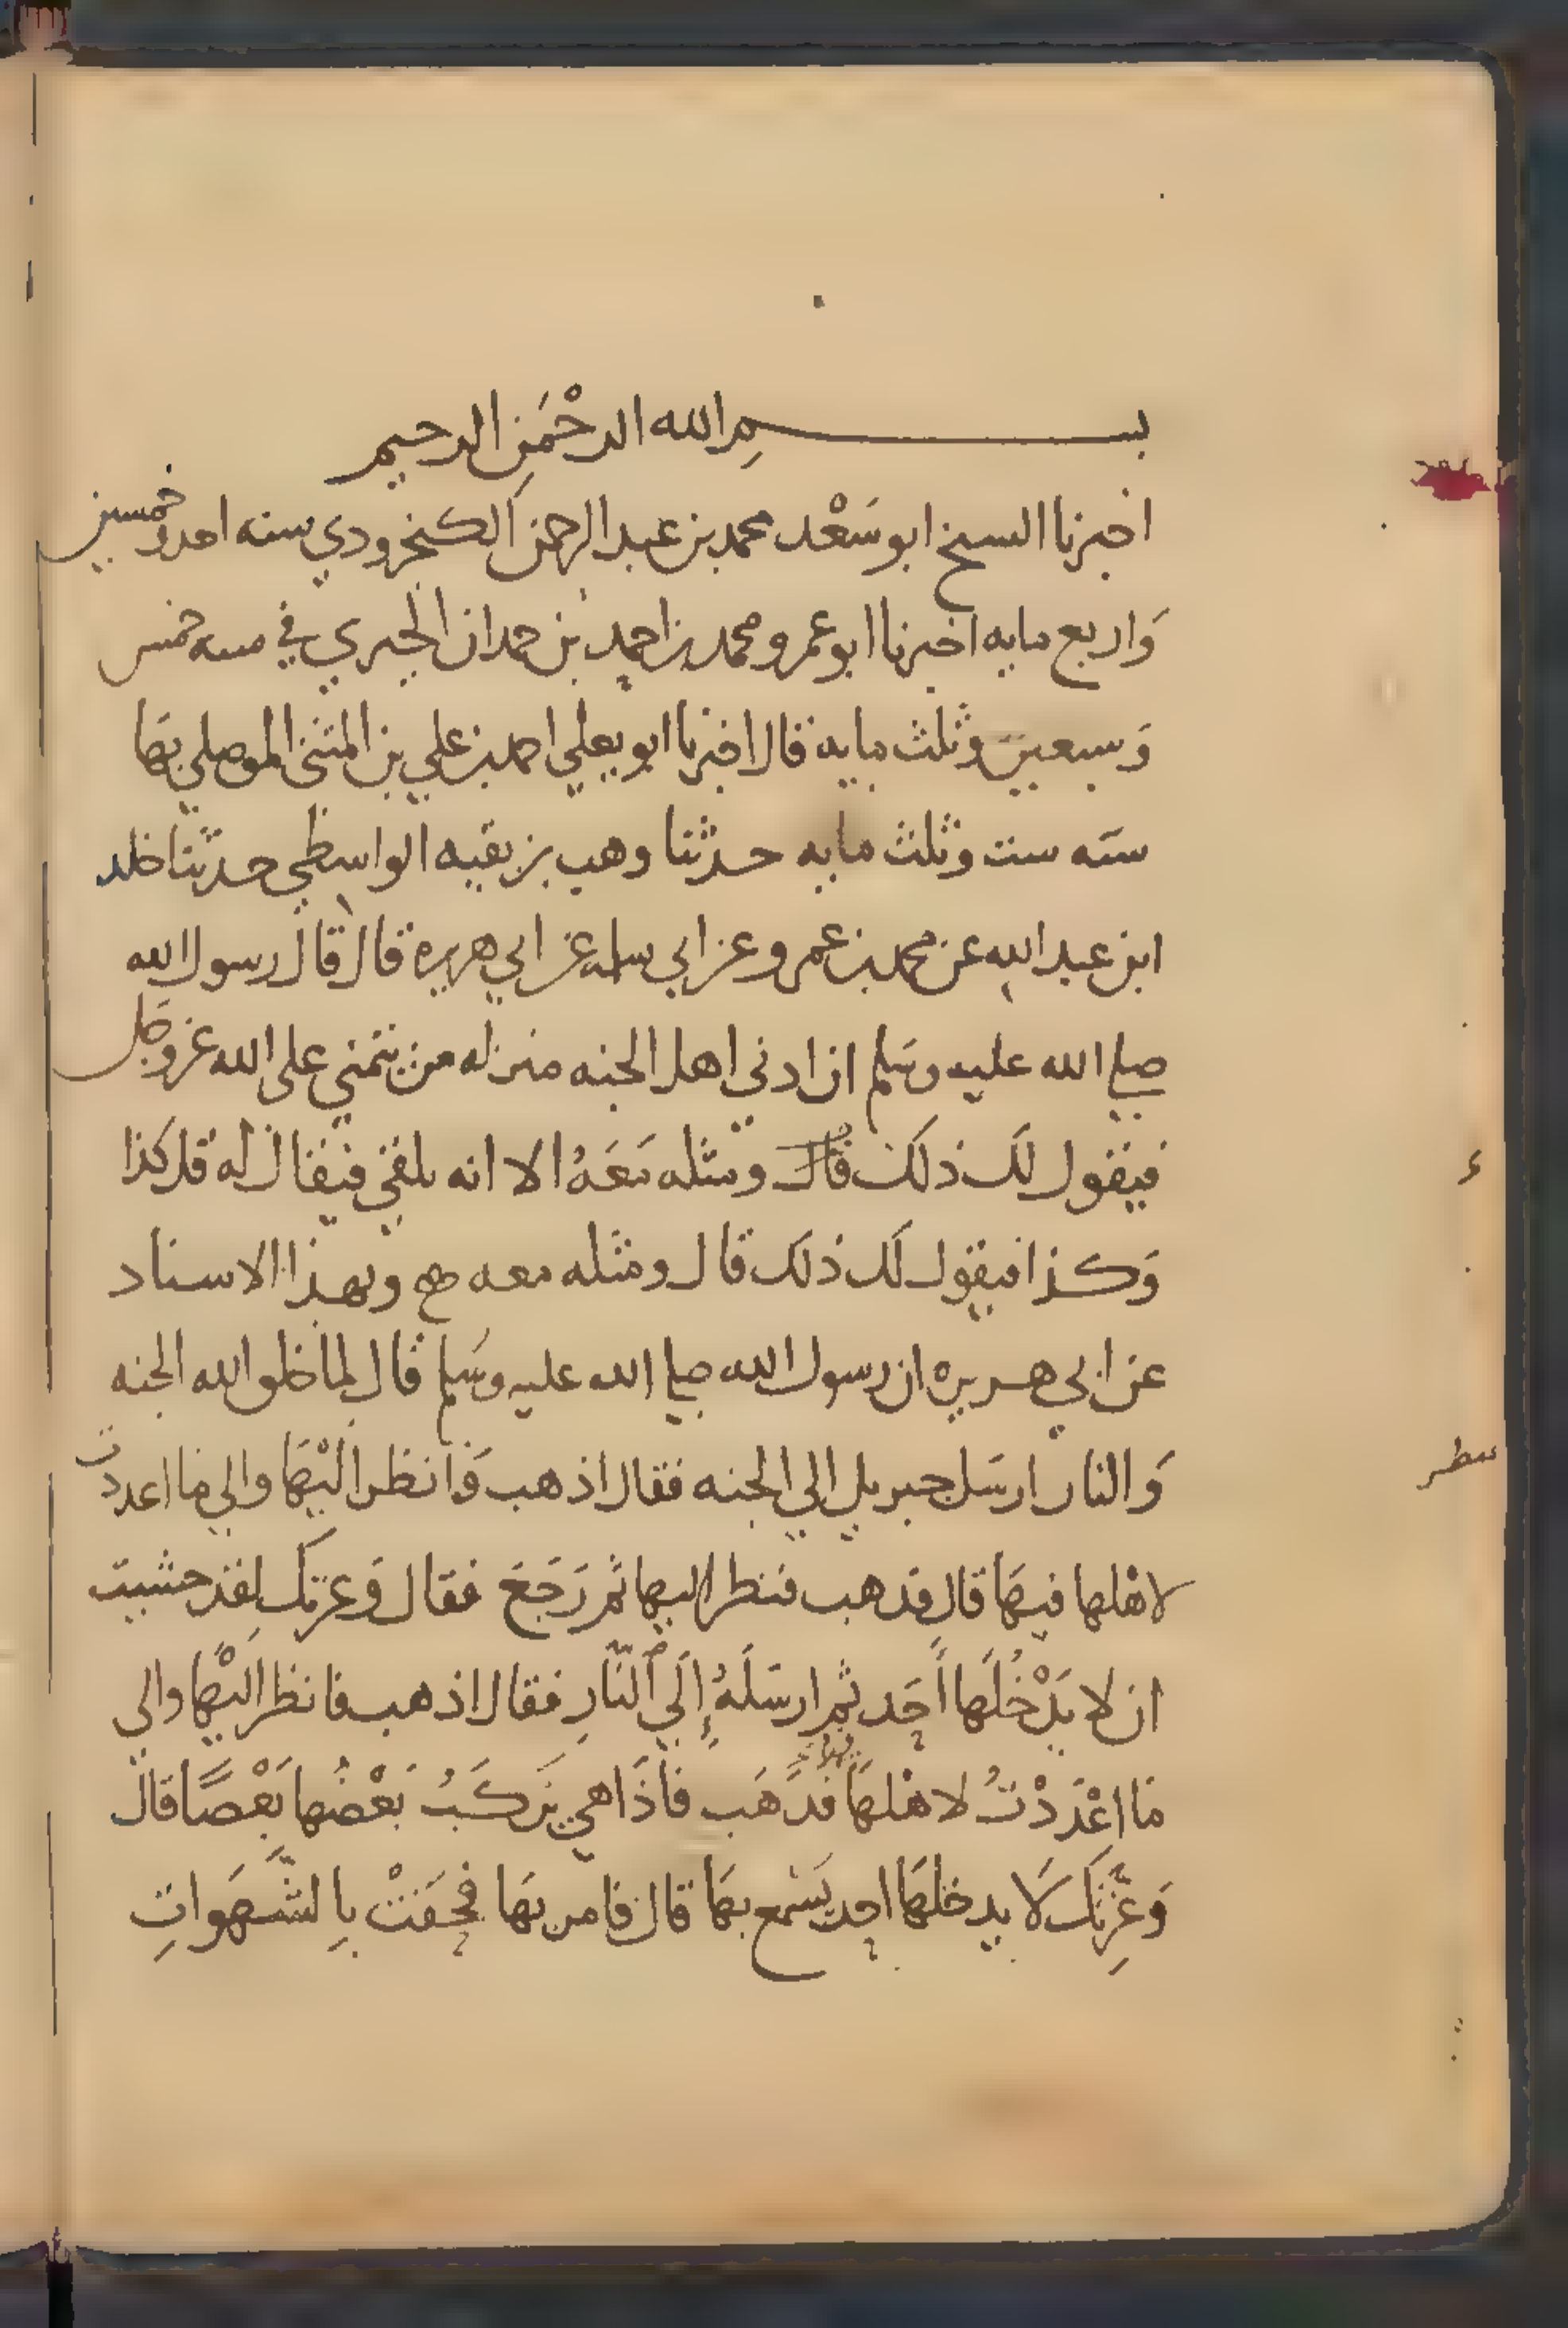 بسم الله الرحمن الرحيم
اخبرنا الشيخ ابو سَعْد محمد بن عبد الرحمن الكنجرودي سنه احدى وخمسين
وَاربع مايه اخبرنا ابو عمرو محمد بن احمد بن حمدان الحيري في سنه خمس
وَسبعين وثلث مايه قال اخبرنا ابو يعلي احمد بن علي بن المثنى الموصلي بهَا
سنَه ست وثلث مايه حدثنا وهب بن بقيه الواسطي حدثنا خلد
ابن عبد الله عن محمد بن عمرو عن ابي سلمه عن ابي هريره قال قال رسول الله
صلي الله عليه وسَلم ان ادني اهل الجنه منزله من يتمني على الله عز وجَل
فيقول لَك ذلك قال ومثله مَعَهُ الا انه يلقي فيقال له قل كذا
وَكذا فيقول لَك ذلك قال ومثله معه صح وبهذا الاسناد
عن ابي هريره ان رسول الله صلي الله عليه وسَلم قال لما خلق الله الجنه
وَالنار ارسَل جبريل الي الجنه فقال اذهب فَانظر اليْهَا والي مَا اعددت
لاهْلها فيهَا قال فذهب فنظر اليها ثم رَجَعَ فقال وَعزتك لقد خشيت
ان لا يَدْخُلَها أَحَد ثم ارسَلَهُ إِلَي ٱلنَّارِ فقال اذهب فانظر اليْهَا والي
مَا اعْدَدْتُ لاهْلهَا فذَهَب فاذَا هي يَركَبُ بَعْضُها بَعْضًا قال
وَعِزَّتكَ لَا يدخلهَا احد يَسْمع بهَا قال فامر بهَا فحُفَتْ بِالشَّهَواتِ
سطر